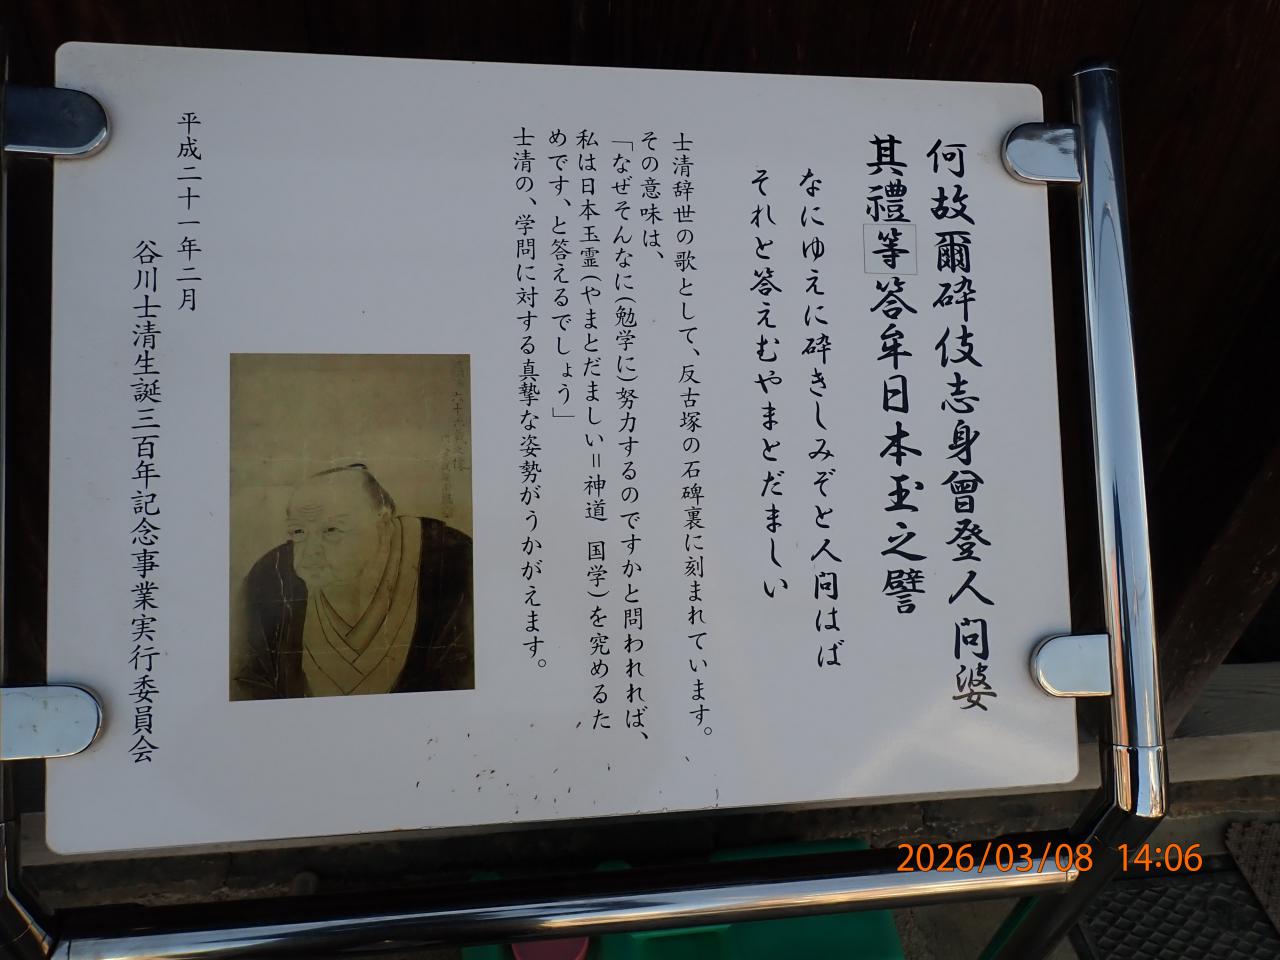 何故爾砕伎志身曾登人問婆
其禮等答牟日本玉之譬
なにゆえに砕きしみぞと人問はば
それと答えむやまとだましい
士清辞世の歌として、反古塚の石碑裏に刻まれています。
その意味は、
「なぜそんなに(勉学に)努力するのですかと問われれば、
私は日本玉霊(やまとだましい＝神道 国学)を究めるた
めです、と答えるでしょう」
士清の、学問に対する真摯な姿勢がうかがえます。
平成二十一年二月
谷川士清生誕三百年記念事業実行委員会
2026/03/08 14:06